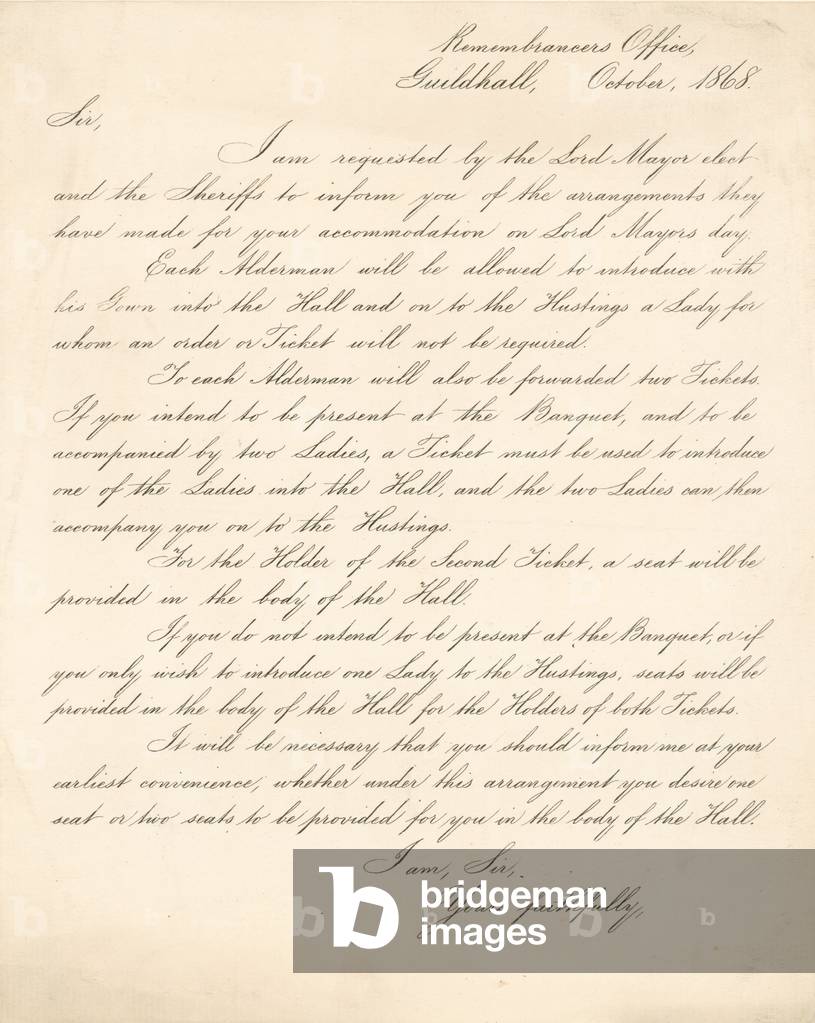 Remembrancers Office,
Guildhall, October, 1868.
Sir,
I am requested by the Lord Mayor elect
and the Sheriffs to inform you of the arrangements they
have made for your accommodation on Lord Mayors day.
Each Alderman will be allowed to introduce with
his Gown into the Hall and on to the Hustings a Lady for
whom an order or Ticket will not be required.
To each Alderman will also be forwarded two Tickets.
If you intend to be present at the Banquet, and to be
accompanied by two Ladies, a Ticket must be used to introduce
one of the Ladies into the Hall, and the two Ladies can then
accompany you on to the Hustings.
For the Holder of the Second Ticket, a seat will be
provided in the body of the Hall.
If you do not intend to be present at the Banquet, or if
you only wish to introduce one Lady to the Hustings, seats will be
provided in the body of the Hall for the Holders of both Tickets.
It will be necessary that you should inform me at your
earliest convenience, whether under this arrangement you desire one
seat or two seats to be provided for you in the body of the Hall.
I am, Sir,
Yours faithfully,
bridgeman
images